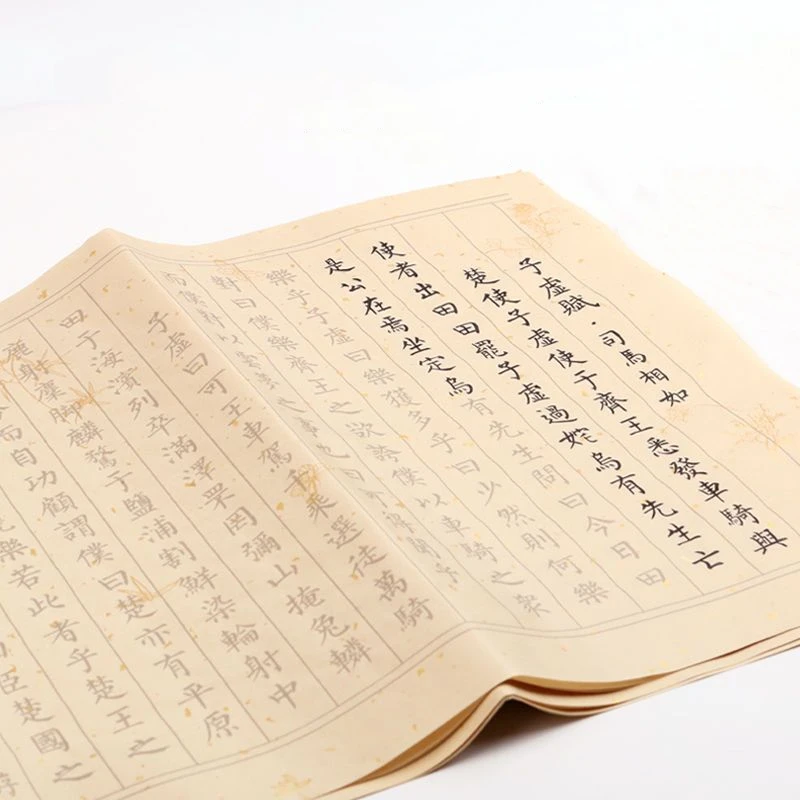 子虛賦·司馬相如
楚使子虛使于齊王悉發車騎與
使者出田田罷子虛過姹烏有先生亡
是公在焉坐定烏有先生問曰今日田
樂乎子虛曰樂獲多乎曰少然則何樂
對曰僕樂齊王之欲誇僕以車騎之衆
而僕對以雲夢之事也曰可得聞乎
子虛曰可王車駕千乘選徒萬騎
田于海濱列卒滿澤罘罔彌山掩兔轔
鹿射麋脚麟騖于鹽浦割鮮染輪射中
而自功顧謂僕曰楚亦有平原
樂若此者乎楚王之
臣楚國之